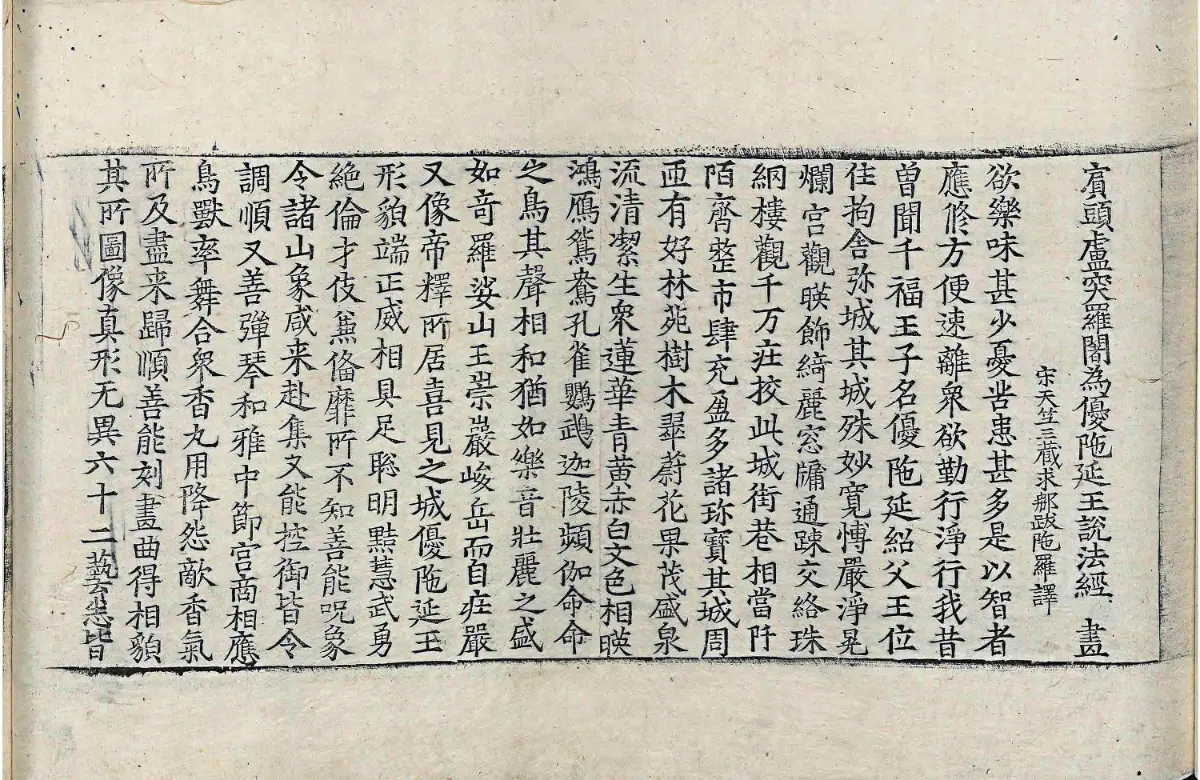 賔頭盧突羅闍為優陁延王說法經 畫
宋天竺三藏求那跋陁羅譯
欲樂味甚少憂苦患甚多是以智者
應修方便速離衆欲勤行淨行我昔
曾聞千福王子名優陁延紹父王位
住拘舍弥城其城殊妙寬愽嚴淨晃
爛宮觀暎飾綺麗窓牖通踈交絡珠
網樓觀千万庄挍此城街巷相當阡
陌齊整市肆充盈多諸珎寶其城周
迊有好林苑樹木翠蔚花果茂盛泉
流清潔生衆蓮華青黄赤白文色相暎
鴻鴈鴛鴦孔雀鸚鵡迦陵頻伽命命
之鳥其聲相和猶如樂音壯麗之盛
如竒羅娑山王崇巖峻岳而自庄嚴
又像帝釋所居喜見之城優陁延王
形貌端正威相具足聡明黠慧武勇
絶倫才伎兼俻靡所不知善能呪象
令諸山象咸来赴集又能控御皆令
調順又善彈琴和雅中節宮商相應
鳥獸率舞合衆香丸用降怨敵香氣
所及盡来歸順善能刻畫曲得相貌
其所圖像真形无異六十二藝悉皆